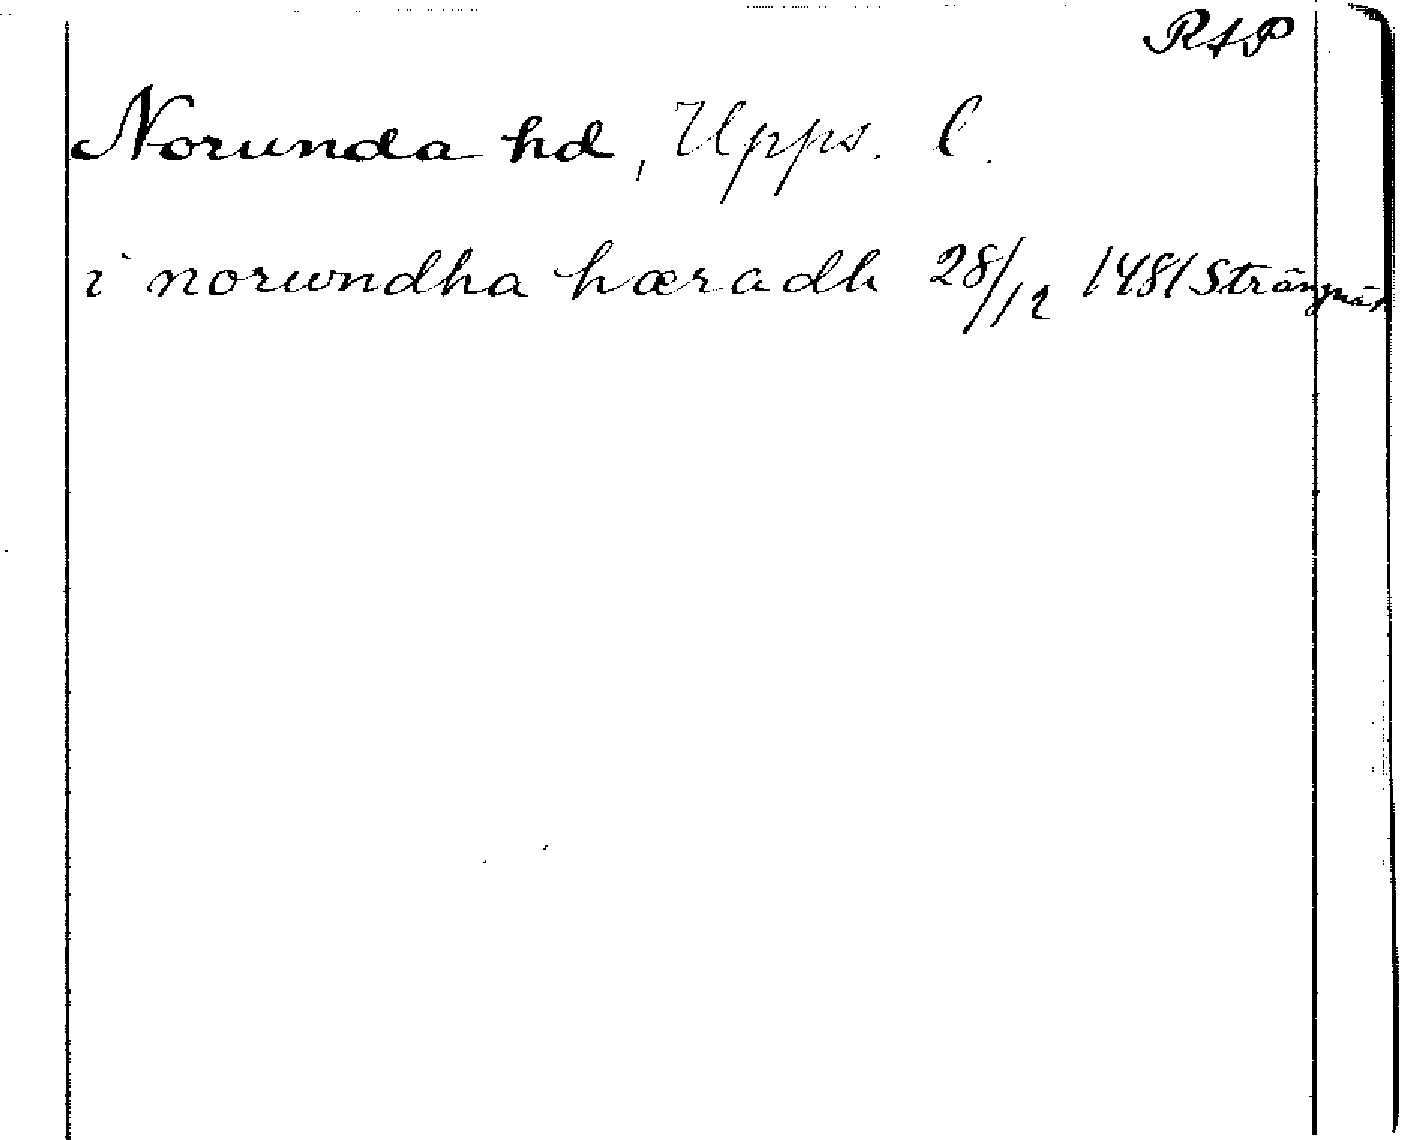 RAP
Norunda hd, Upps. l.
i norundha hæradh 28/12 1481 Strängnäs